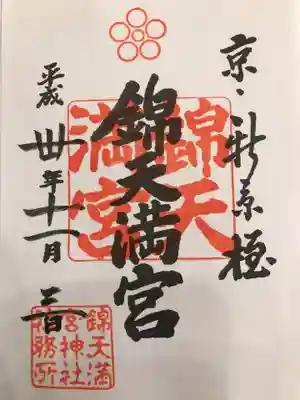 京・新京極
錦天満宮
錦天
満宮
平成卅年十一月三日
錦天満
宮神社
社務所